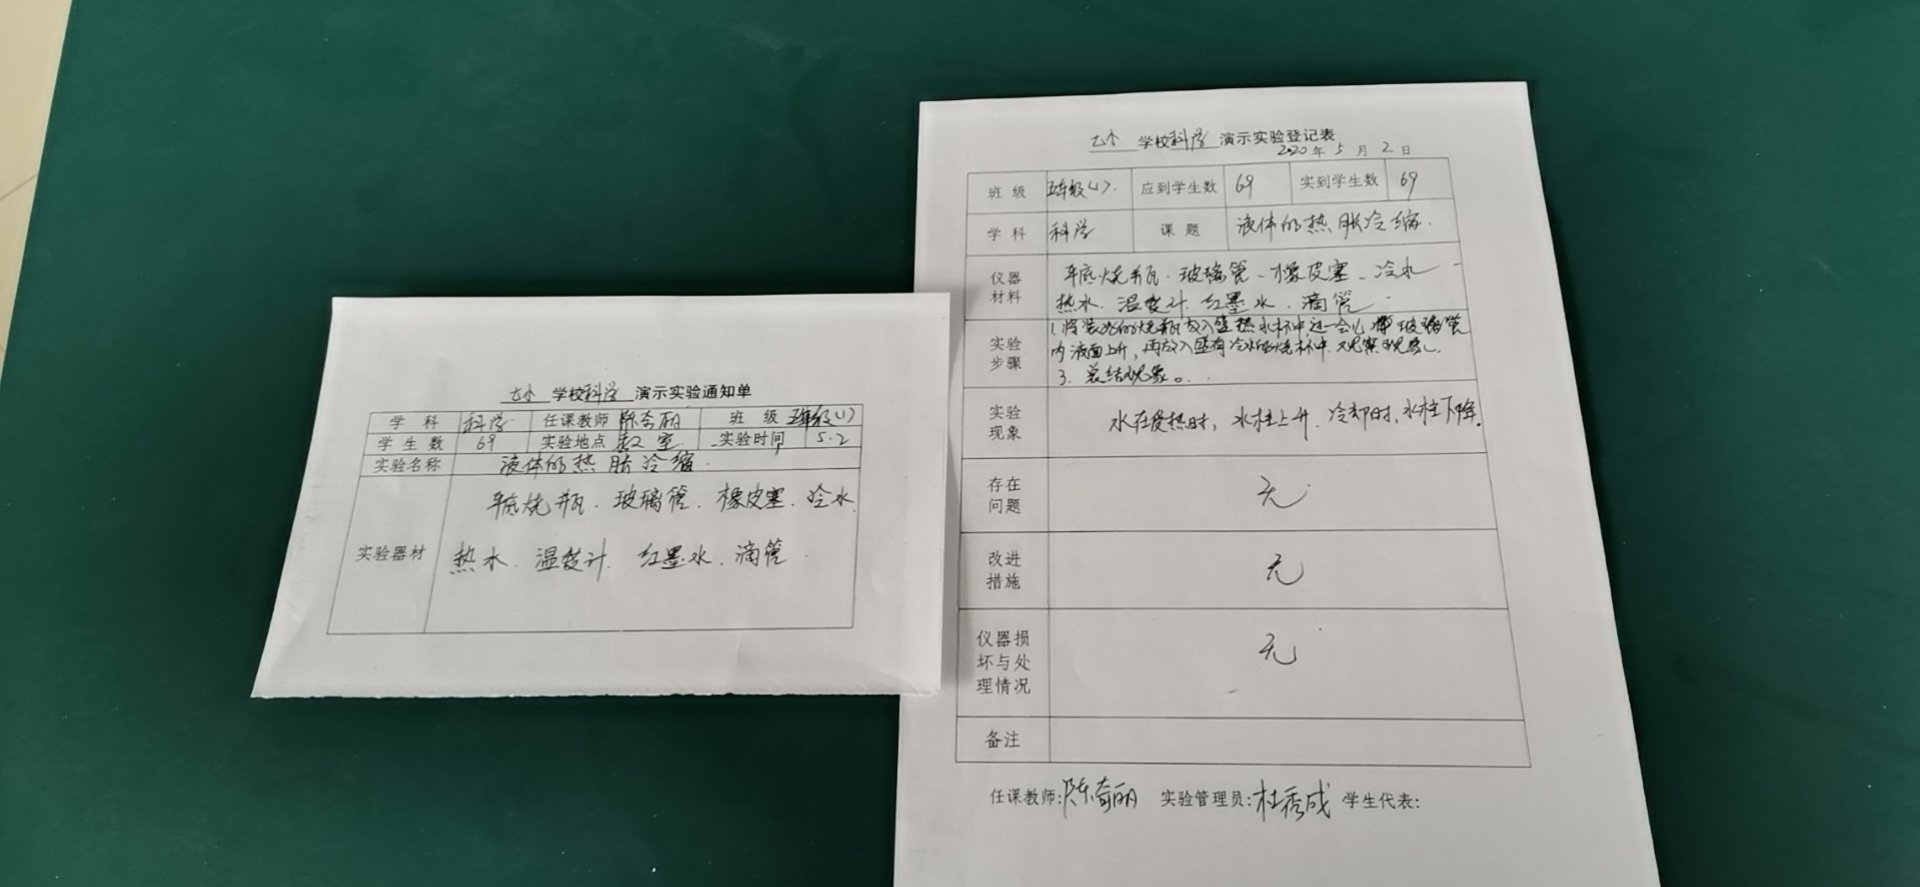 学校科学 演示实验通知单
学科 科学 任课教师 陈奇丽 班级 五年级(1)
学生数 69 实验地点 教室 实验时间 5.2
实验名称 液体的热胀冷缩
平底烧瓶、玻璃管、橡皮塞、冷水
实验器材 热水、温度计、红墨水、滴管
学校科学 演示实验登记表
2020年5月2日
班级 五年级(1) 应到学生数 69 实到学生数 69
学科 科学 课题 液体的热胀冷缩
仪器材料 平底烧瓶、玻璃管、橡皮塞、冷水
热水、温度计、红墨水、滴管
实验步骤 1.将装好的烧瓶放入盛热水杯中,过一会儿 玻璃管
内液面上升,再放入盛有冷水的烧杯中,观察现象
3.总结现象。
实验现象 水在受热时,水柱上升,冷却时,水柱下降。
存在问题 无
改进措施 无
仪器损坏与处理情况 无
备注
任课教师:陈奇丽 实验管理员:杜秀成 学生代表: